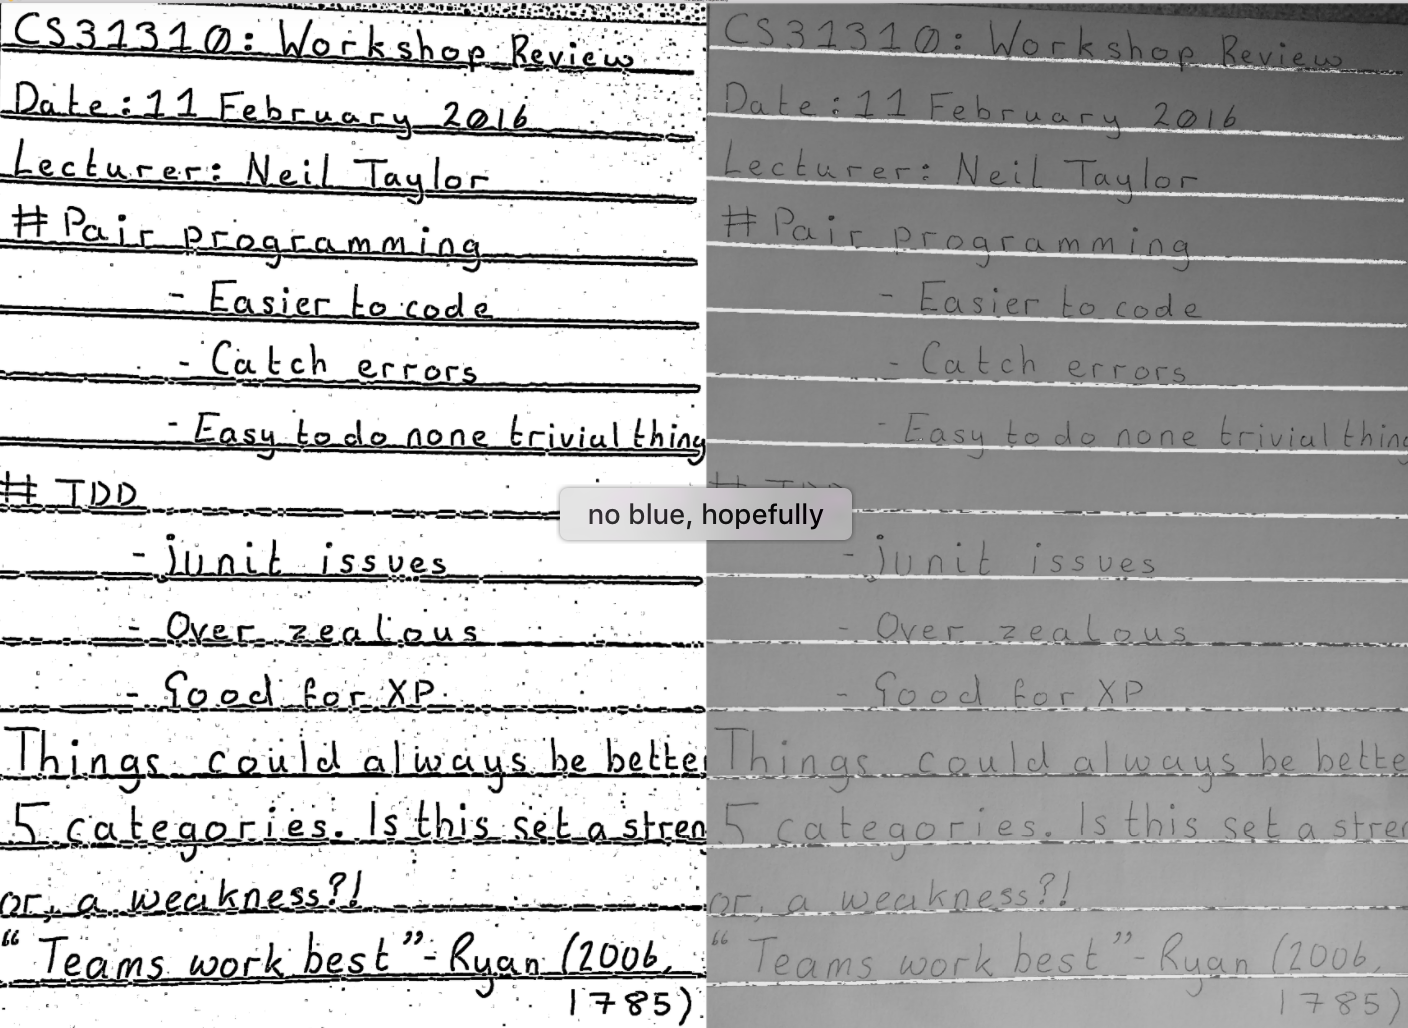 CS31310: Workshop Review
Date: 11 February 2016
Lecturer: Neil Taylor
# Pair programming
- Easier to code
- Catch errors
- Easy to do none trivial thing
# TDD
- junit issues
- Over zealous
- Good for XP
Things could always be bette
5 categories. Is this set a stren
or, a weakness?!
“Teams work best” - Ryan (2006,
1785)
CS31310: Workshop Review
Date: 11 February 2016
Lecturer: Neil Taylor
# Pair programming
- Easier to code
- Catch errors
- Easy to do none trivial thing
# TDD
no blue, hopefully
- junit issues
- Over zealous
- Good for XP
Things could always be bette
5 categories. Is this set a stren
or, a weakness?!
“Teams work best” - Ryan (2006,
1785)